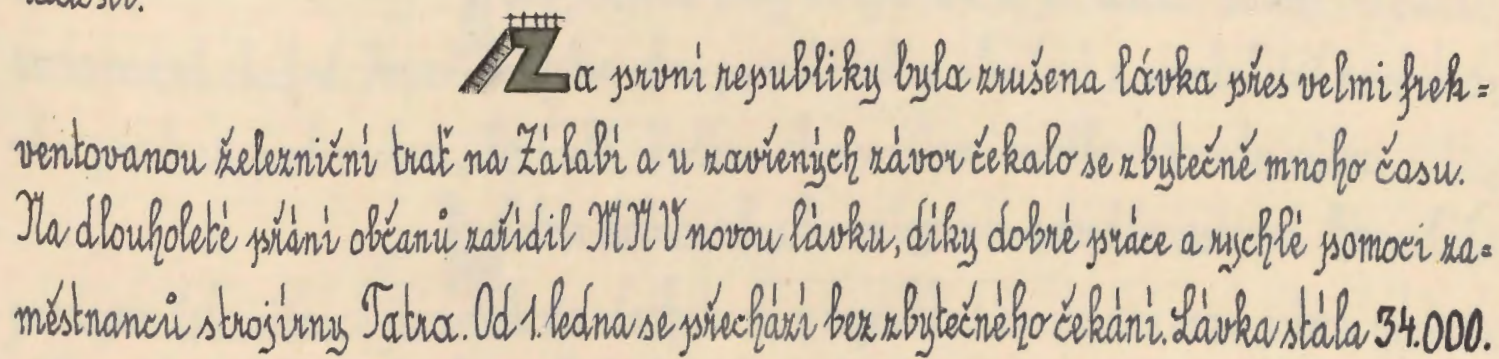 Za první republiky byla zrušena lávka přes velmi frek=
ventovanou železniční trať na Zálabí a u zavřených závor čekalo se zbytečně mnoho času.
Na dlouholeté přání občanů zařídil MNV novou lávku, díky dobré práce a rychlé pomoci za=
městnanců strojírny Tatra. Od 1. ledna se přechází bez zbytečného čekání. Lávka stála 34.000.